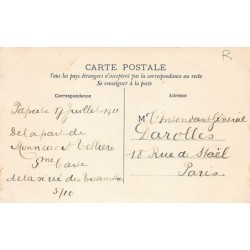 R
CARTE POSTALE
Tous les pays étrangers n'acceptent pas la correspondance au recto
Se renseigner à la poste
Correspondance
Adresse
Papeete 17 juillet 1911
De la part de
Monsieur
5/10
Mr l'Intendant Général
Darolles
18 Rue de Staël
Paris